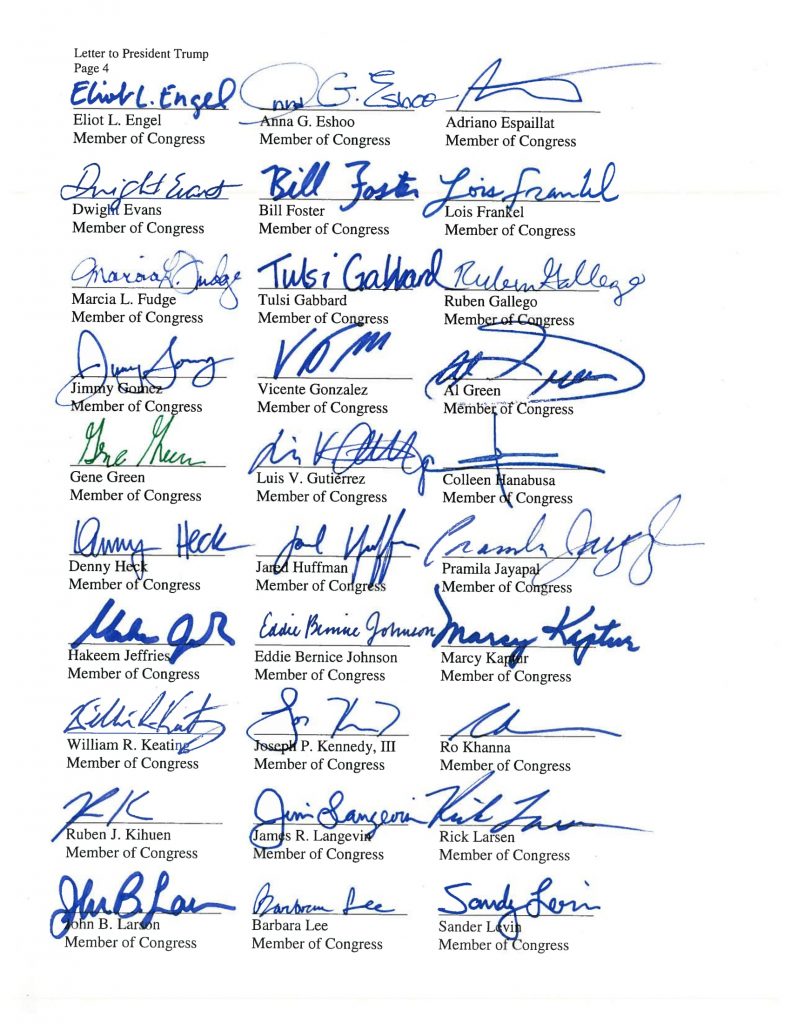 Letter to President Trump
Page 4
Eliot L. Engel Anna G. Eshoo
Eliot L. Engel Anna G. Eshoo Adriano Espaillat
Member of Congress Member of Congress Member of Congress
Dwight Evans Bill Foster Lois Frankel
Dwight Evans Bill Foster Lois Frankel
Member of Congress Member of Congress Member of Congress
Marcia L. Fudge Tulsi Gabbard Ruben Gallego
Marcia L. Fudge Tulsi Gabbard Ruben Gallego
Member of Congress Member of Congress Member of Congress
Jimmy Gomez Vicente Gonzalez Al Green
Member of Congress Member of Congress Member of Congress
Gene Green
Gene Green Luis V. Gutiérrez Colleen Hanabusa
Member of Congress Member of Congress Member of Congress
Denny Heck Jared Huffman Pramila Jayapal
Denny Heck Jared Huffman Pramila Jayapal
Member of Congress Member of Congress Member of Congress
Eddie Bernice Johnson Marcy Kaptur
Hakeem Jeffries Eddie Bernice Johnson Marcy Kaptur
Member of Congress Member of Congress Member of Congress
William R. Keating
William R. Keating Joseph P. Kennedy, III Ro Khanna
Member of Congress Member of Congress Member of Congress
Jim Langevin Rick Larsen
Ruben J. Kihuen James R. Langevin Rick Larsen
Member of Congress Member of Congress Member of Congress
John B. Larson Barbara Lee Sandy Levin
John B. Larson Barbara Lee Sander Levin
Member of Congress Member of Congress Member of Congress